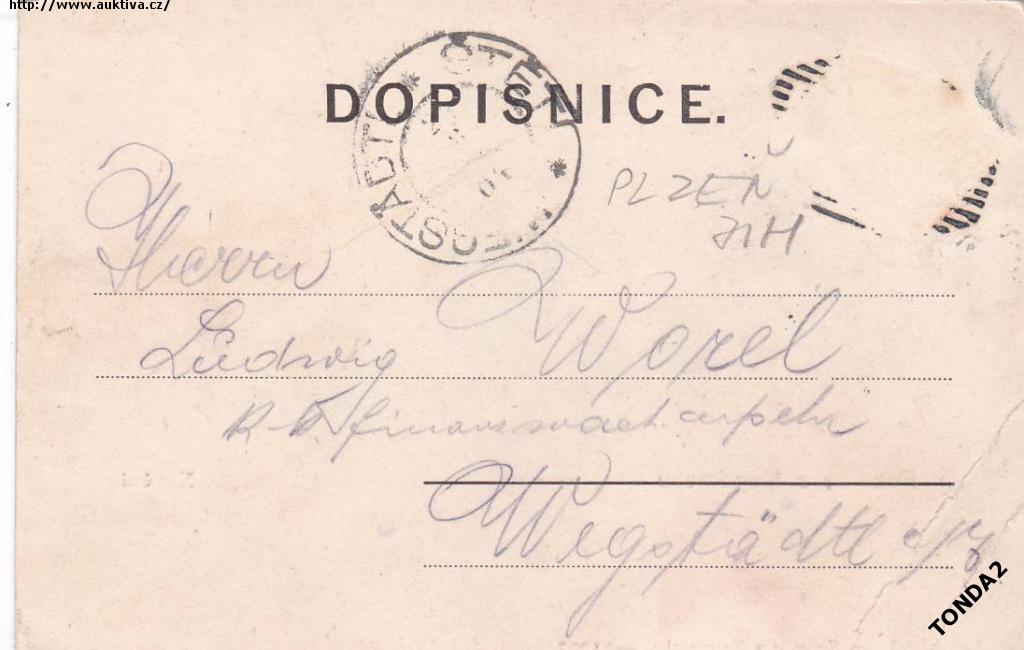 http://www.auktiva.cz/
DOPISNICE.
WEGSTÄDTL * ŠTĚTÍ *
PLZEŇ
JIH
Herrn
Ludwig Worel
k. k. finanzwach
Wegstädtl a/E
TONDA2